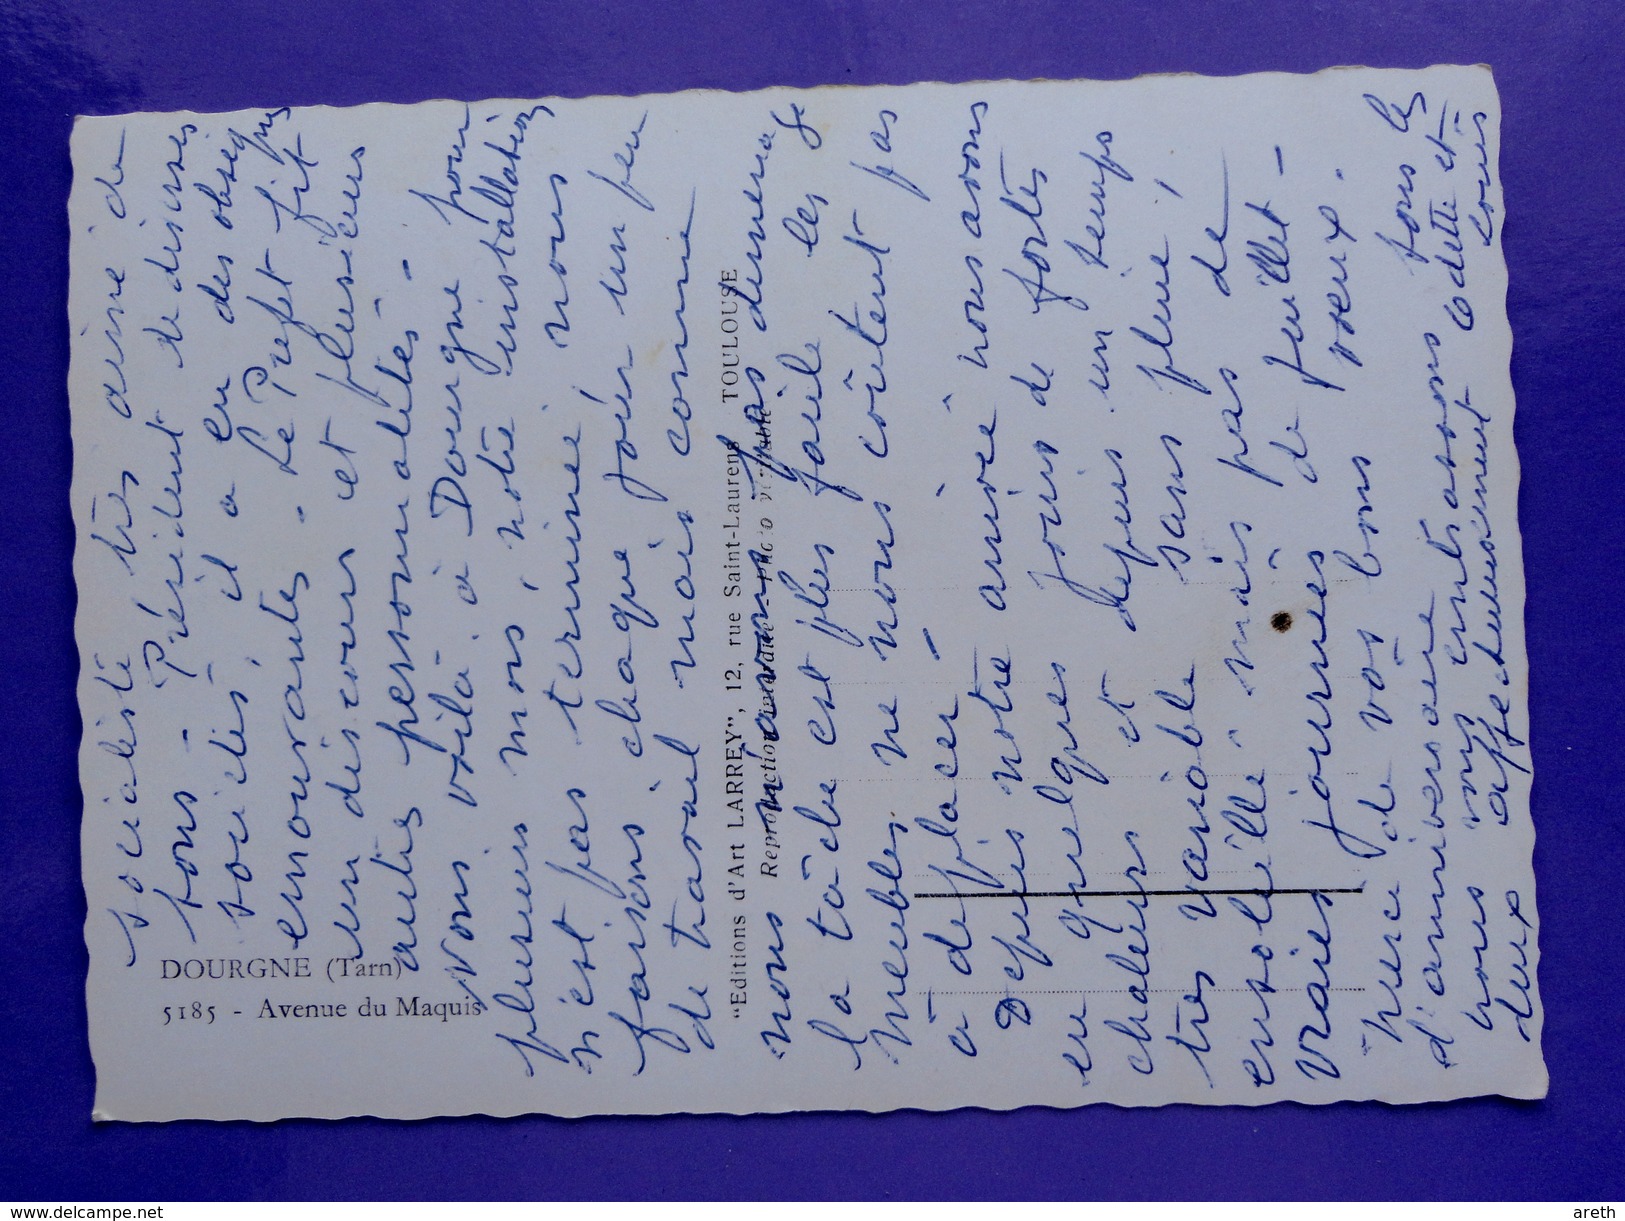 DOURGNE (Tarn)
5185 - Avenue du Maquis
"Editions d'Art LARREY", 12, rue Saint-Laurent TOULOUSE
Reproduction interdite - Photo véritable
socialiste très aimé de
tous - Président de diverses
sociétés, il a eu des obsèques
émouvantes. Le Préfet fit
un discours et plusieurs
autres personnalités -
Vous voilà à Dourgne pour
plusieurs mois, notre installation
n'est pas terminée nous
faisons chaque jour un peu
de travail mais comme
nous n'avons pas déménagé
la tâche est plus facile les
meubles ne nous coûtent pas
à déplacer -
Depuis notre arrivée nous avons
eu quelques jours de fortes
chaleurs et depuis un temps
très variable sans pluie,
ensoleillé mais pas de
vraies journées de juillet -
Merci de vos bons voeux.
d'anniversaire
nous vous embrassons tous les
deux affectueusement Odette et
Louis